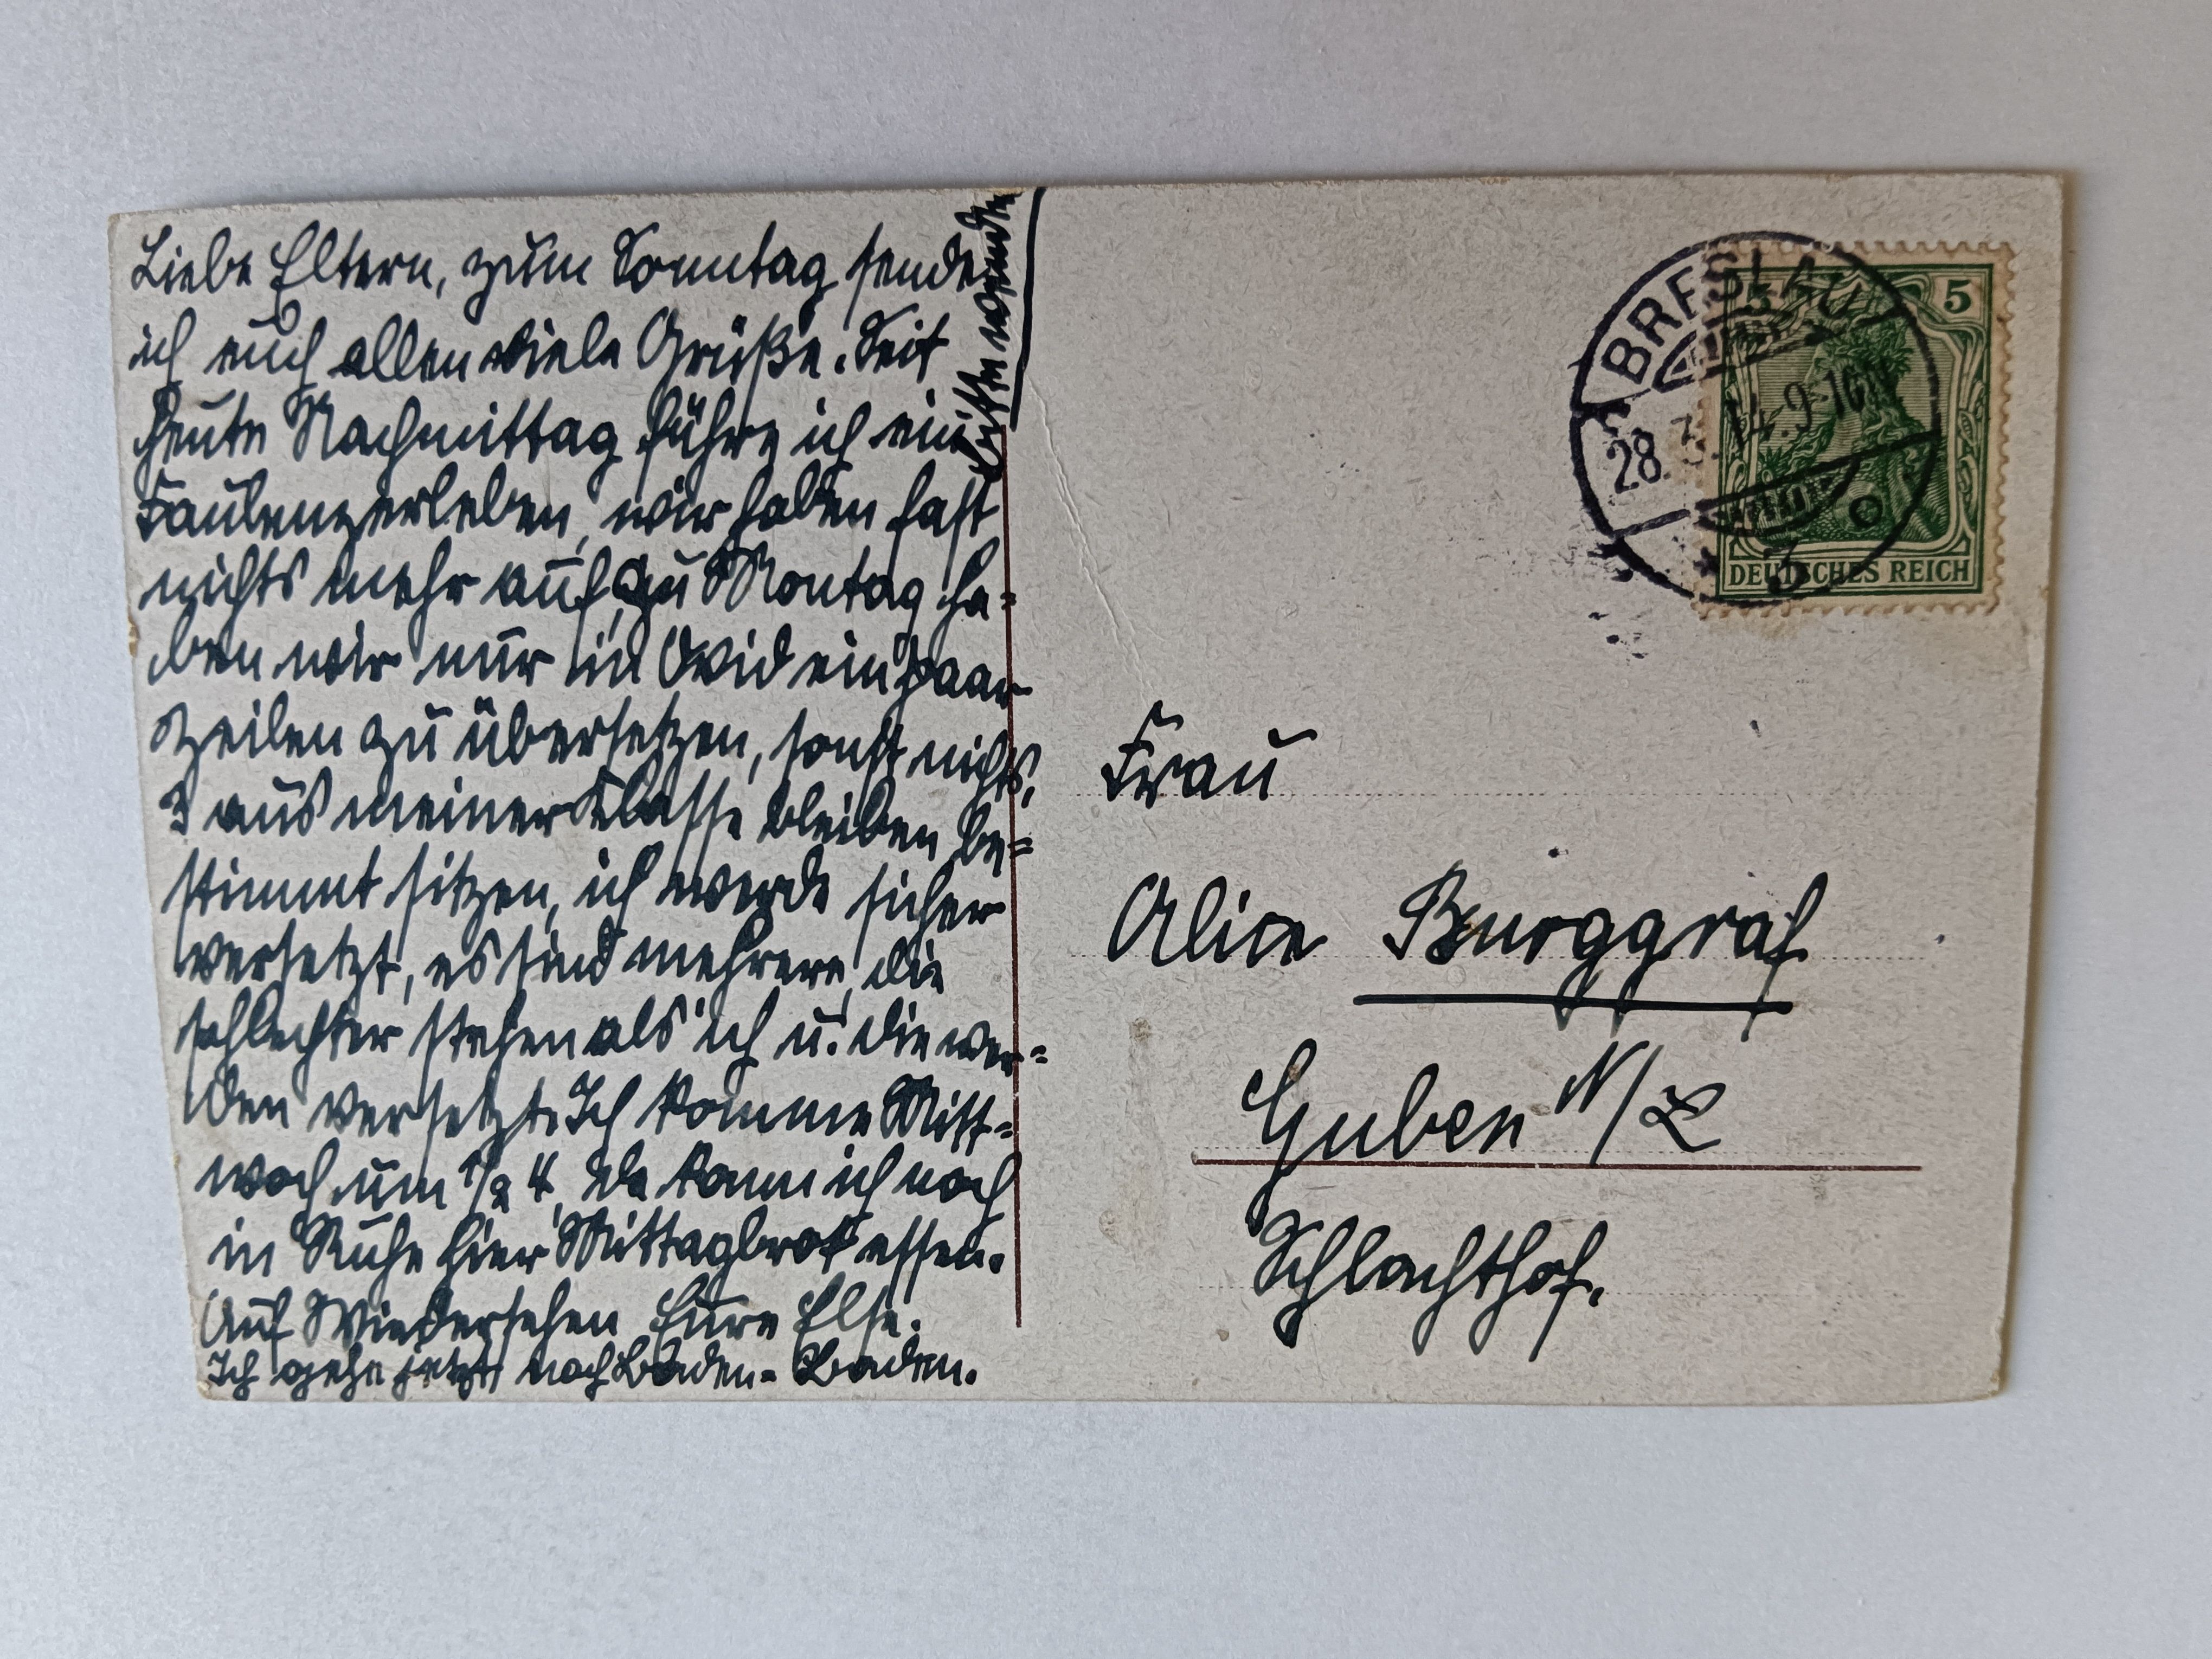 Liebe Eltern, zum Sonntag sende
ich euch allen viele Grüße. Seit
heute Nachmittag führe ich ein
Faulenzerleben, wir haben fast
nichts mehr auf, zu Montag ha-
ben wir nur in Ovid ein paar
Zeilen zu übersetzen, sonst nichts,
3 aus meiner Klasse bleiben be-
stimmt sitzen, ich werde sicher
versetzt, es sind mehrere, die
schlechter stehen als ich u. die wer-
den versetzt. Ich komme Mitt-
woch um 1/2 4, da kann ich noch
in Ruhe hier Mittagbrot essen.
Auf Wiedersehen Eure Else.
Ich gehe jetzt nach Baden-Baden.
Bitte wenden
BRESLAU
28.3.14.9-10
5
DEUTSCHES REICH
Frau
Alice Burggraf
Guben N/L
Schlachthof.